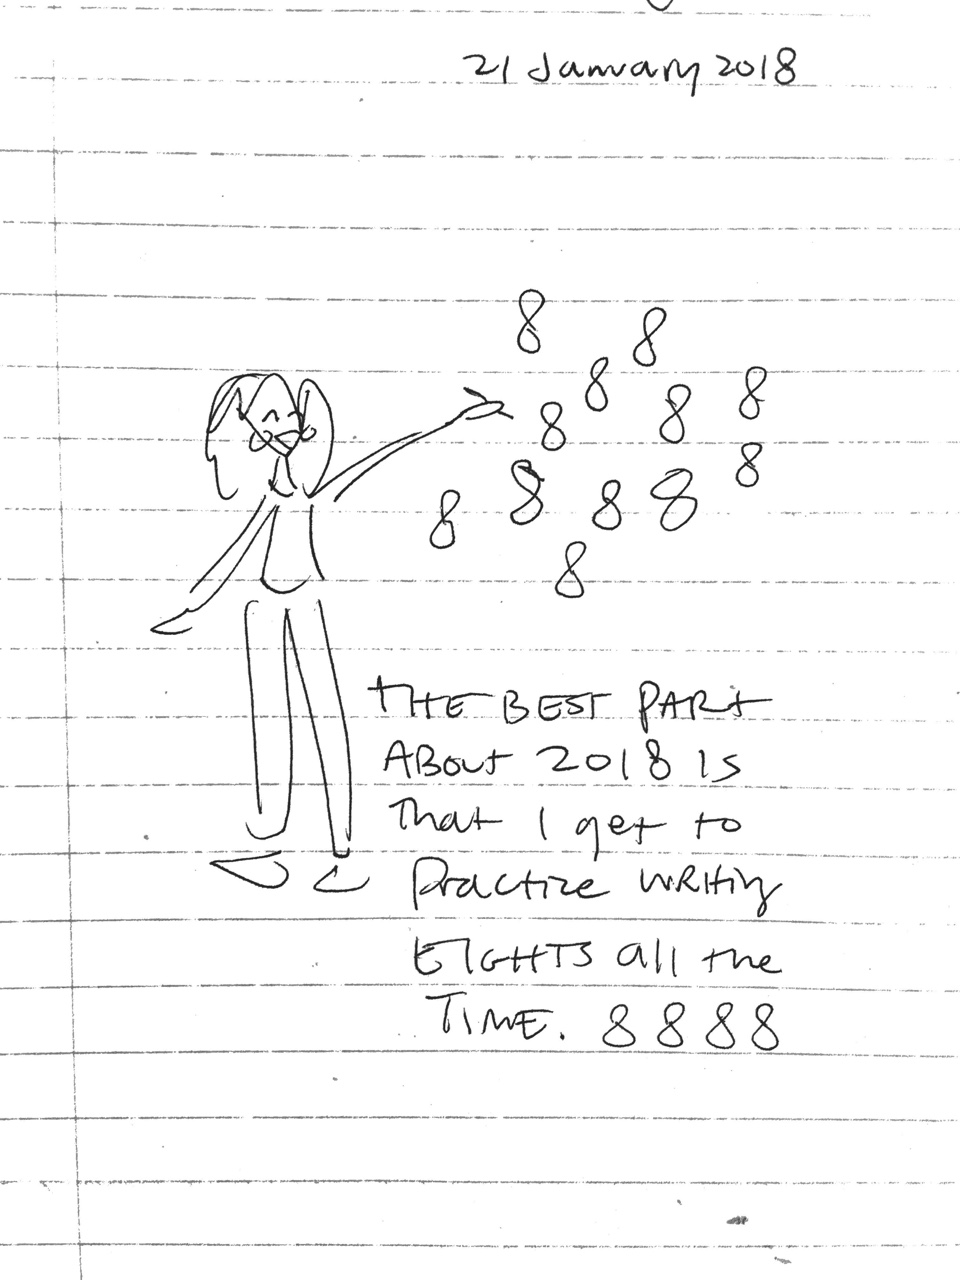 21 January 2018
8
8
8
8
8
8
8
8
8
8
8
8
THE BEST PART
ABOUT 2018 IS
That I get to
Practice WRITING
EIGHTS all the
TIME. 8 8 8 8